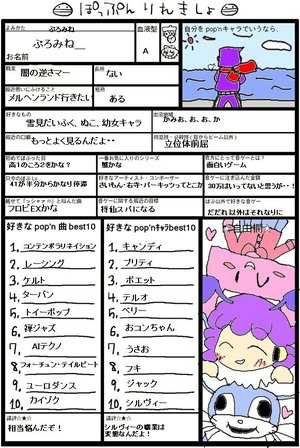 ぽっぷん りれきしょ
よみかた
ぷろみね
ぷろみね__
お名前
血液型
A
自分を pop'n キャラでいうなら、
職業
闇の逆さマー
長所
ない
メルヘンランド行きたい
短所
ある
好きなもの
雪見だいふく、ぬこ、幼女キャラ
出没地域
かみお、お、お、か
最近の口癖
もっとよく見るんだよ・・
立位体前屈
初めてぽっぷった日
高1のころ2をかな?
一番お気に入りのシリーズ
蟹かな
貴方にとって音ゲーとは?
面白いゲーム
今日のぽぷしゅ
41が半分からかなり停滞
好きなアーティスト・コンポーザー
さいもん・おさ・パーキッツってとこか
音ゲーに注ぎ込んだ金額
30万はいってないと思うが・・
フロビEXかな
音ゲーに関する最近の目標
将伍スパになる
ぽぷ以外で好きな音ゲー
だだれ以外はそれなりに
好きな pop'n 曲 best10
1. コンテンポラリネイション
2. レーシング
3. ケルト
4. ターバン
5. トイーポップ
6. 禅ジャズ
7. AIテクノ
8. フォーチュン・テイルビート
9. ユーロダンス
10. カイゾク
講評☆★☆
相当悩んだぞ!
好きな pop'nキャラbest10
1. キャンディ
2. プリティ
3. ポエット
4. テルオ
5. ベリー
6. おコンちゃん
7. うさお
8. フキ
9. ジャック
10. シルヴィー
講評☆★☆
シルヴィーの職業は
変態なんだよ!
自由欄